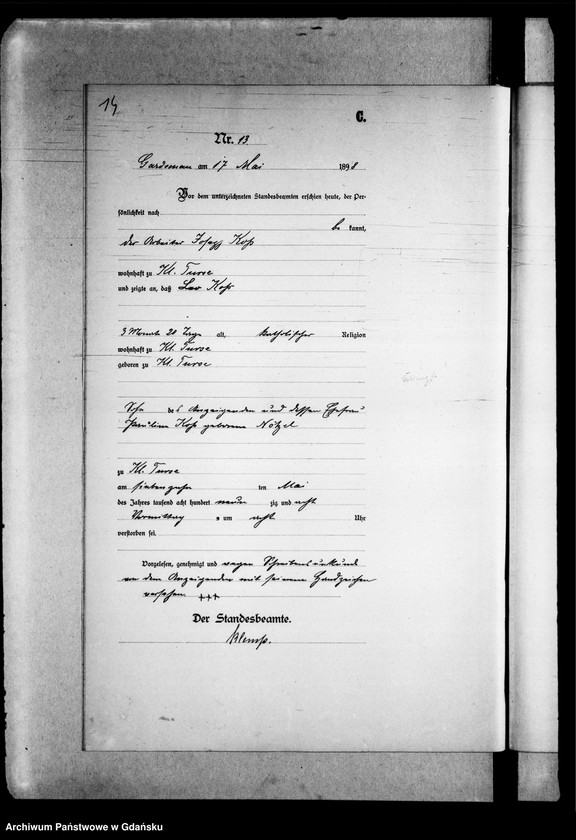 14
C.
Nr. 13
am 17 Mai 1898
Vor dem unterzeichneten Standesbeamten erschien heute, der Per-
sönlichkeit nach
be kannt,
der Arbeiter Josef Koß
wohnhaft zu Kl. Turse
und zeigte an, daß Leo Koß
3 Monate 20 Tage alt, katholischer Religion
wohnhaft zu Kl. Turse
geboren zu Kl. Turse
Sohn des Anzeigenden und dessen Ehefrau
Pauline Koß geborene Nötzel
zu Kl. Turse
am siebenzehn ten Mai
des Jahres tausend acht hundert neun zig und acht
Vormittag s um acht Uhr
verstorben sei.
Vorgelesen, genehmigt und wegen Schreibensunkunde
von dem Anzeigenden mit seinem Handzeichen
versehen +++
Der Standesbeamte.
Archiwum Państwowe w Gdańsku